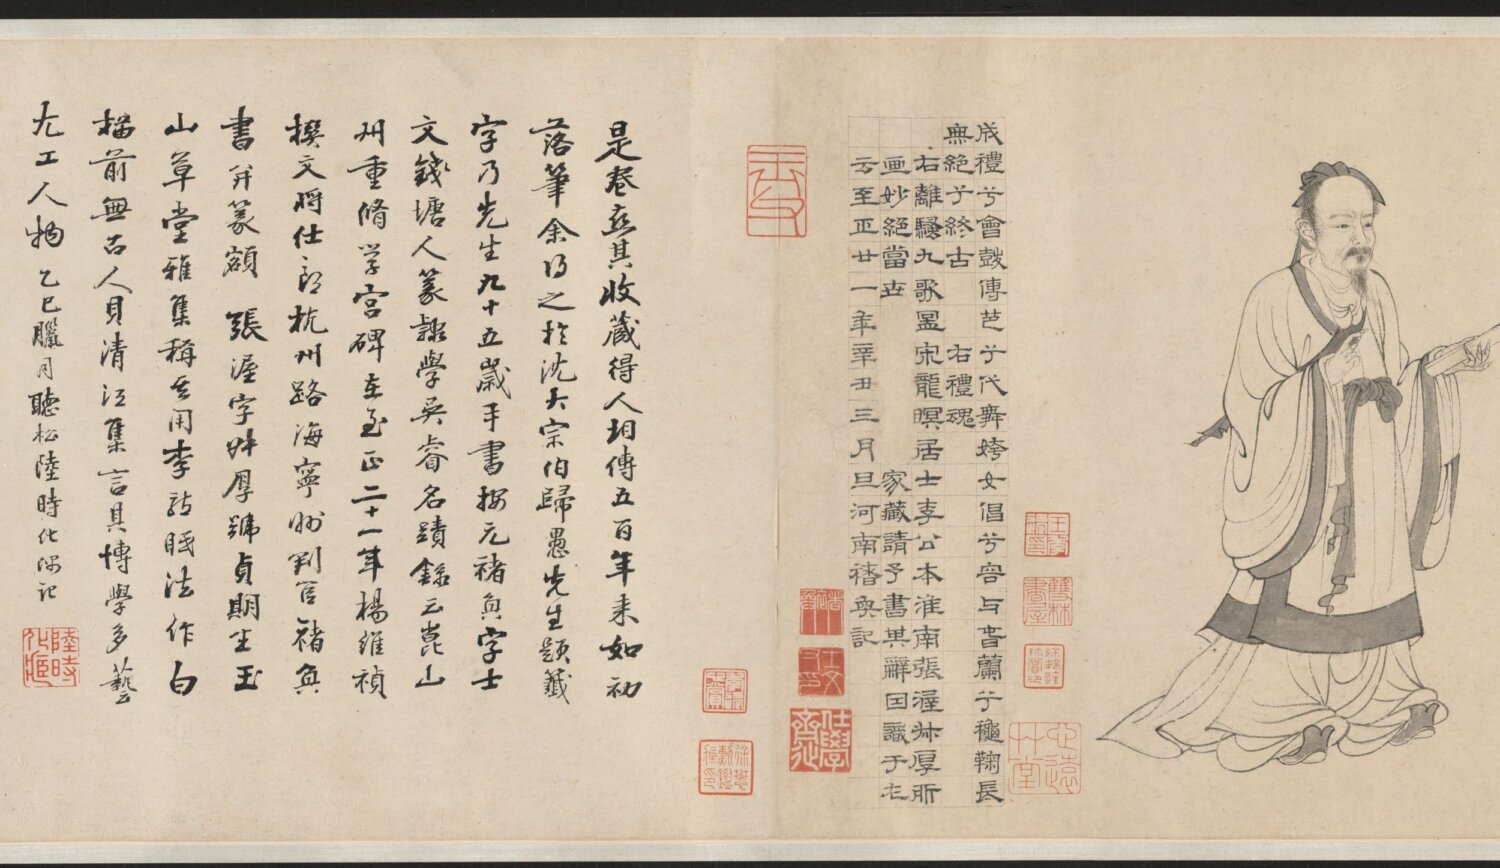 成禮兮會鼓傳芭兮代舞姱女倡兮容与旾蘭兮龝鞠長
無絕兮終古 右禮魂
右離騷九歌圖宋龍眠居士李公本淮南張渥叔厚所
画妙絕當世 家藏請予書其辭因識于左
云至正廿一年辛丑三月旦河南褚奐記
是卷其收藏得人相傳五百年来如初
落筆余得之於沈大宗伯歸愚先生題籤
字乃先生九十五歲手書按元褚奐字士
文錢塘人篆隸學吳睿名蹟錄云崑山
州重脩学宮碑在至正二十一年楊維禎
撰文將仕郎杭州路海寧州判官褚奐
書并篆額 張渥字叔厚號貞期生玉
山草堂雅集稱其用李龍眠法作白
描前無古人貝清江集言其博學多藝
尤工人物 乙巳臘月聽松陸時化偶記
陸時化印